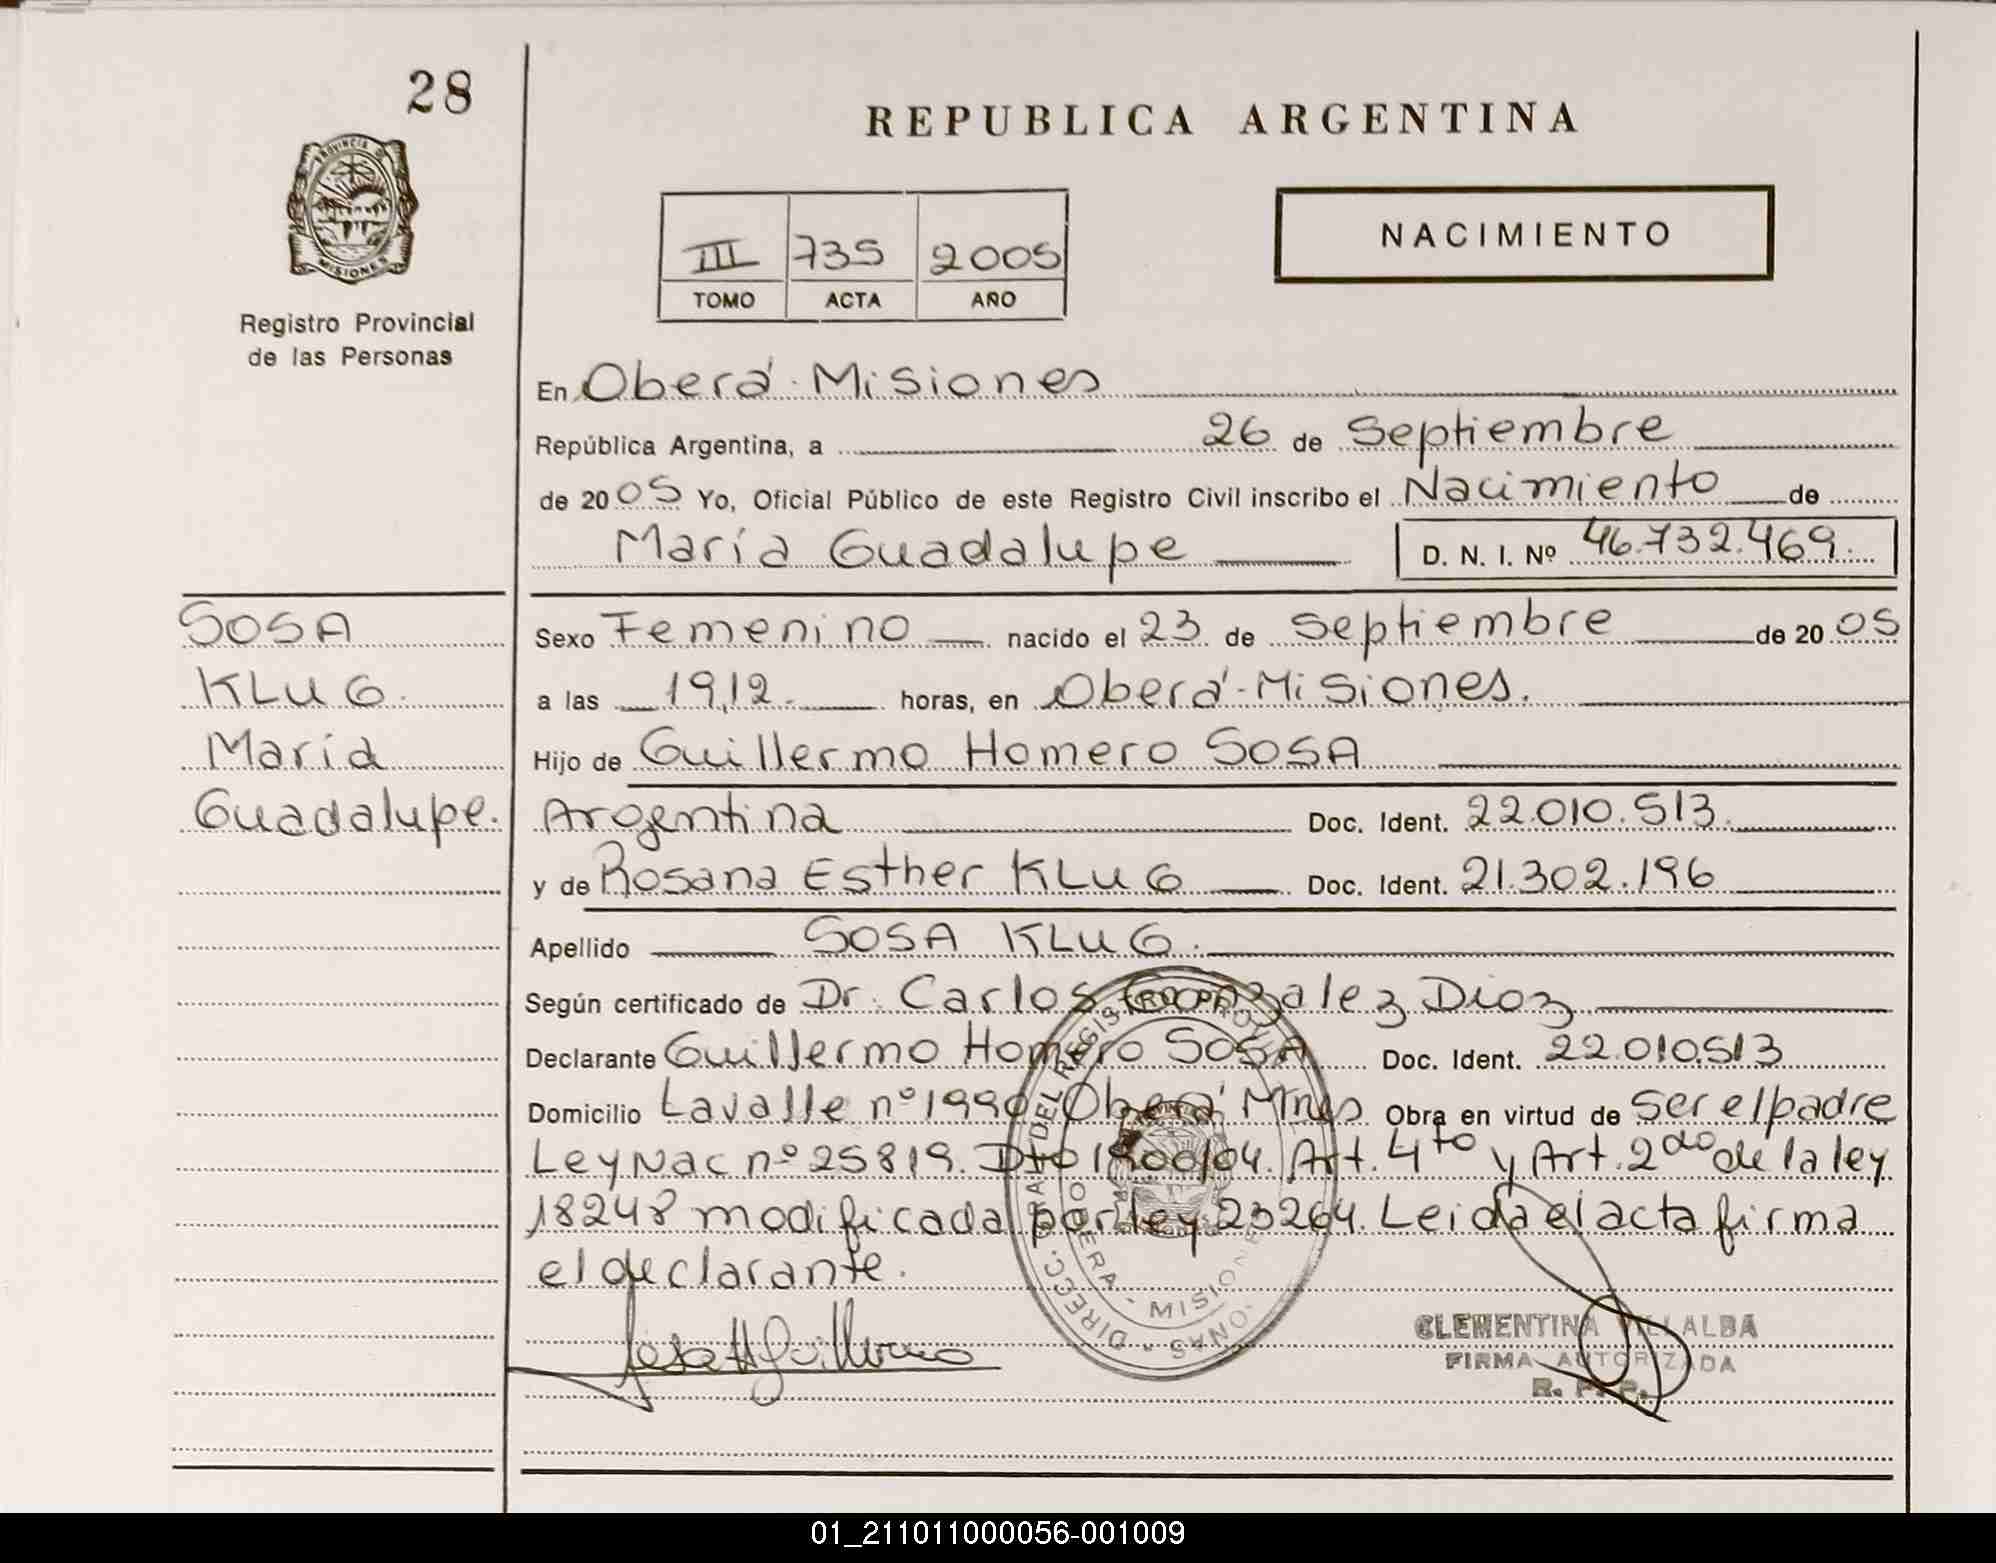 28
REPUBLICA ARGENTINA
PROVINCIA DE
MISIONES
Registro Provincial
de las Personas
III 735 2005
TOMO ACTA AÑO
NACIMIENTO
En Oberá - Misiones
República Argentina, a 26 de Septiembre
de 2005 Yo, Oficial Público de este Registro Civil inscribo el Nacimiento de
María Guadalupe D. N. I. Nº 46.732.469.
SOSA
KLUG.
María
Guadalupe.
Sexo Femenino nacido el 23 de Septiembre de 2005
a las 19,12. horas, en Oberá - Misiones.
Hijo de Guillermo Homero SOSA
Argentina Doc. Ident. 22.010.513.
y de Rosana Esther KLUG Doc. Ident. 21.302.196
Apellido SOSA KLUG.
Según certificado de Dr. Carlos Gonzalez Dioz
Declarante Guillermo Homero SOSA Doc. Ident. 22.010.513
Domicilio Lavalle nº 1990 Oberá Mnes Obra en virtud de ser el padre
Ley Nac nº 25819. Dto 1900/04. Art. 4to y Art. 2do de la ley
18248 modificada por ley 23264. Leida el acta firma
el declarante.
DIRECC. GRAL. DEL REGISTRO PROV.
OBERA - MISIONES
Sosa H Guillermo
CLEMENTINA VILLALBA
FIRMA AUTORIZADA
R. P. P.
01_211011000056-001009